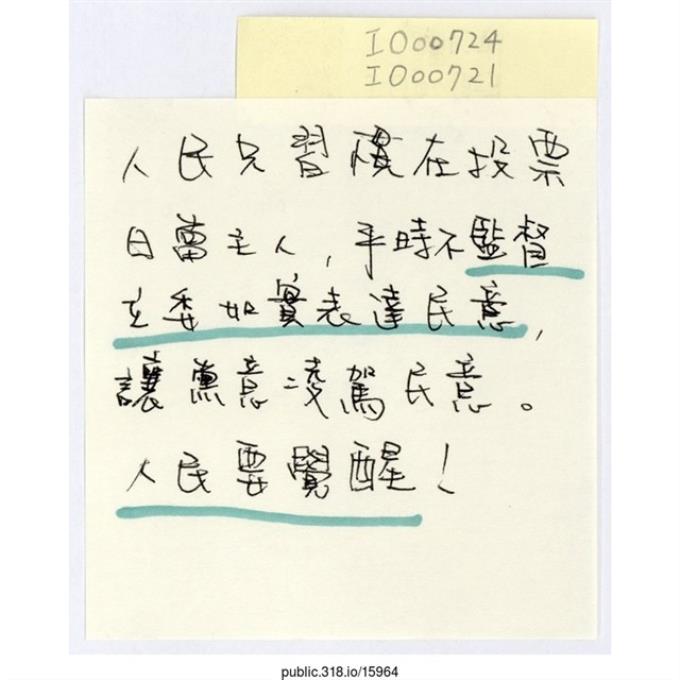 IO00724
IO00721
人民只習慣在投票
日當主人,平時不監督
立委如實表達民意,
讓黨意凌駕民意。
人民要覺醒!
public.318.io/15964